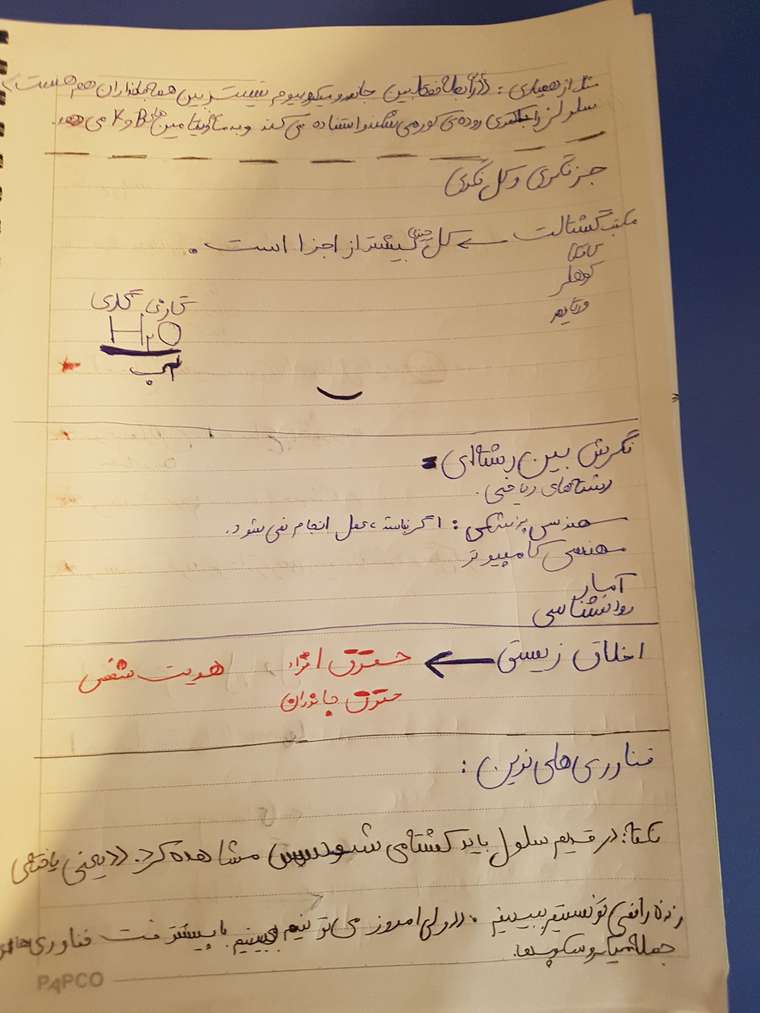 مثال از همیاری: «رابطه فقط بین جاندار و میکروبیوم نیست و بین همه جانداران هم هست»
سلولز را باکتری روده‌ی کور می‌شکند استفاده می‌کند و به ما ویتامین های B و K می دهد.
جزنگری و کل نگری
مکتب گشتالت ← کل چیزی بیشتر از اجزا است.
کافکا
کوهلر
ورتایمر
گازی گازی
H₂O
آب
نگرش بین رشته‌ای:
رشته‌های ریاضی.
مهندسی پزشکی: اگر نباشد، عمل انجام نمی شود.
مهندسی کامپیوتر
آمار
روانشناسی
اخلاق زیستی ← حقوق افراد هویت شخصی
حقوق جانوران
فناوری های نوین:
نکته: در قدیم سلول باید کشته می شد سپس مشاهده کرد. «یعنی یاخته‌ی
زنده را نمی تونستیم ببینیم. «ولی امروز می تونیم ببینیم با پیشرفت فناوری ها از
جمله میکروسکوپ‌ها.
PAPCO